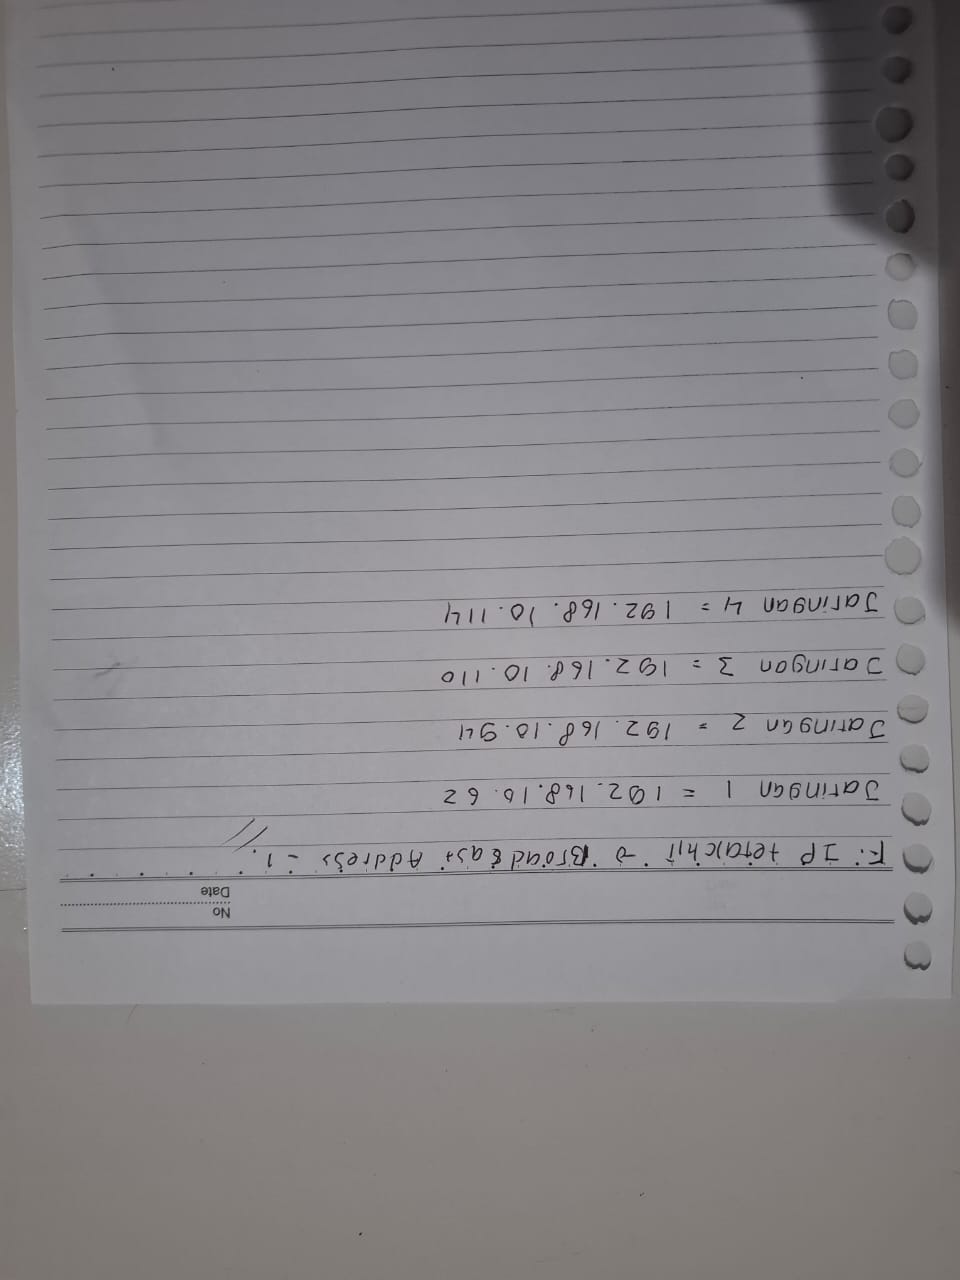 No
Date
F. IP terakhir → Broadcast Address - 1.
Jaringan 1 = 192.168.10.62
Jaringan 2 = 192.168.10.94
Jaringan 3 = 192.168.10.110
Jaringan 4 = 192.168.10.114